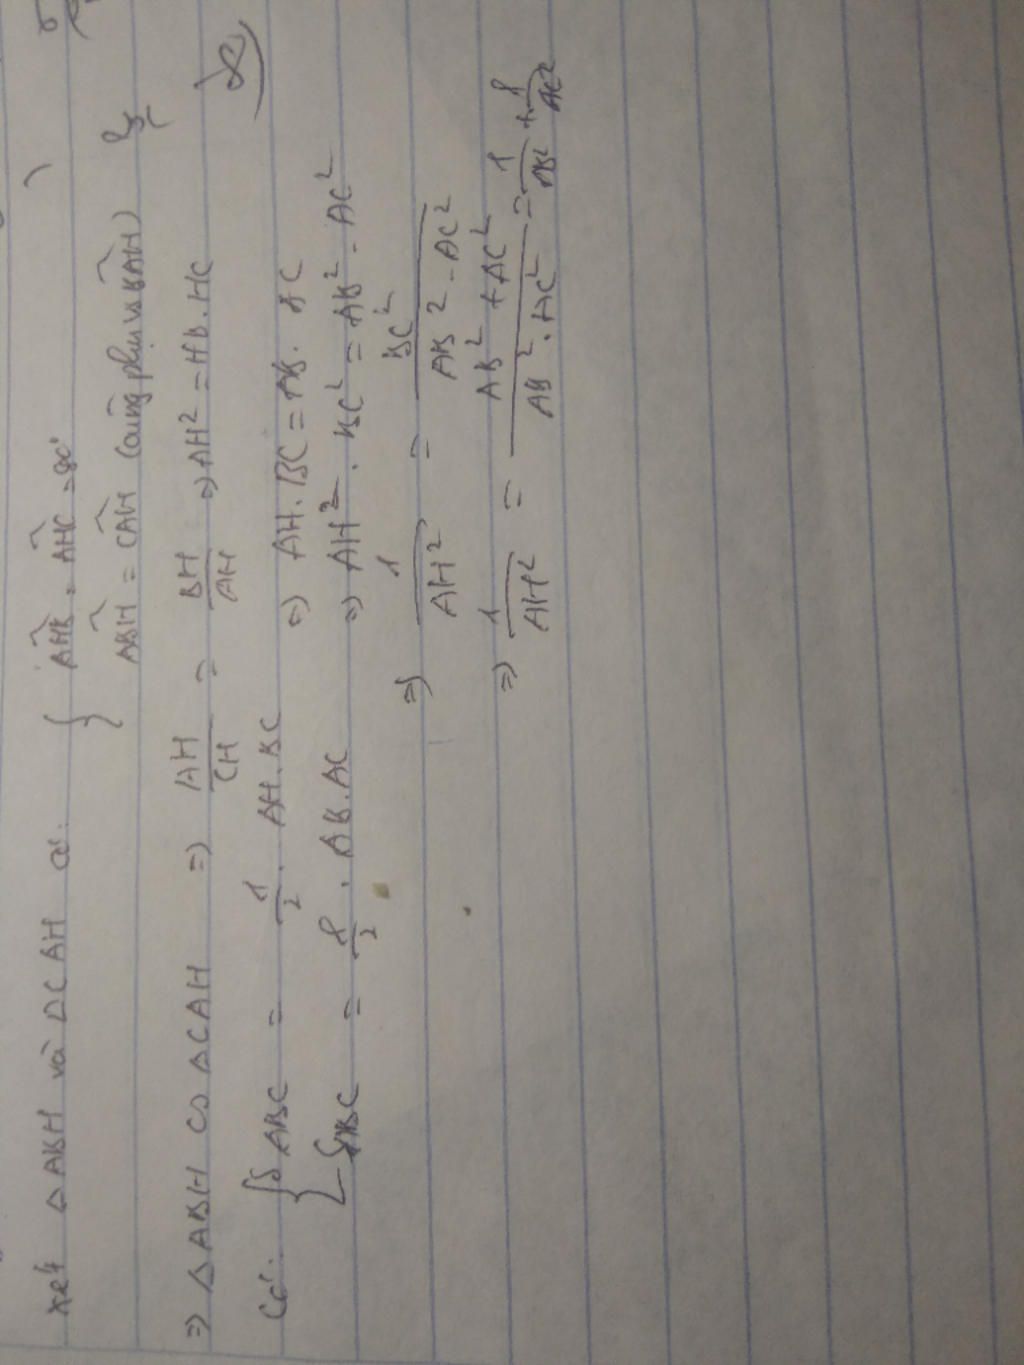 Xét △ABH và △CAH có:
{ AHB = AHC = 90°
ABH = CAH (cùng phụ vs BAH)
⇒ △ABH ∽ △CAH ⇒ AH/CH = BH/AH ⇒ AH² = HB.HC
Có: { SABC = 1/2 . AH.BC ⇒ AH.BC = AB.AC
SABC = 1/2 . AB.AC ⇒ AH².BC² = AB².AC²
⇒ 1/AH² = BC²/AB².AC²
⇒ 1/AH² = AB² + AC²/AB².AC² = 1/AB² + 1/AC²